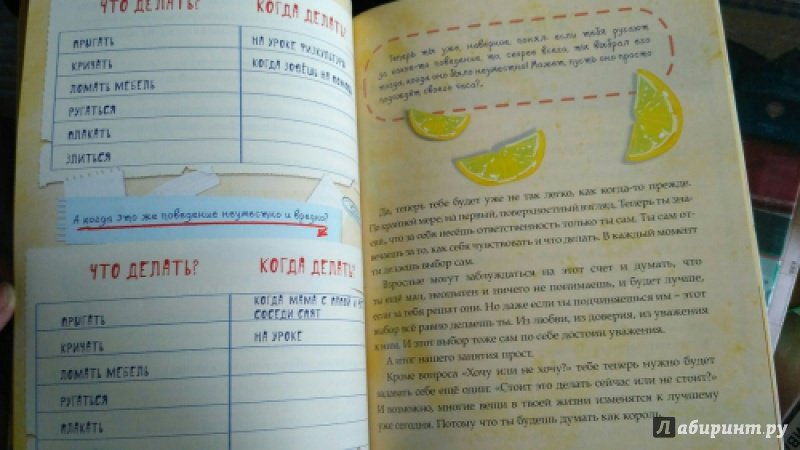 ЧТО ДЕЛАТЬ? КОГДА ДЕЛАТЬ?
ПРЫГАТЬ НА УРОКЕ ФИЗКУЛЬТУРЫ
КРИЧАТЬ КОГДА ЗОВЁШЬ НА
ЛОМАТЬ МЕБЕЛЬ
РУГАТЬСЯ
ПЛАКАТЬ
ЗЛИТЬСЯ
А когда это же поведение неуместно и вредно?
ЧТО ДЕЛАТЬ? КОГДА ДЕЛАТЬ?
КОГДА МАМА С ПАПОЙ И
ПРЫГАТЬ СОСЕДИ СПЯТ
КРИЧАТЬ НА УРОКЕ
ЛОМАТЬ МЕБЕЛЬ
РУГАТЬСЯ
ПЛАКАТЬ
Теперь ты уже, наверное, понял: если тебя ругают
за какое-то поведение, то, скорее всего, ты выбрал его
тогда, когда оно было неуместно! Может, пусть оно просто
подождёт своего часа?..
Да, теперь тебе будет уже не так легко, как когда-то прежде.
По крайней мере, на первый, поверхностный взгляд. Теперь ты зна-
ешь, что за себя несёшь ответственность только ты сам. Ты сам от-
вечаешь за то, как себя чувствовать и что делать. В каждый момент
ты делаешь выбор сам.
Взрослые могут заблуждаться на этот счет и думать, что
ты ещё мал, неопытен и ничего не понимаешь, и будет лучше,
если за тебя решат они. Но даже если ты подчиняешься им – этот
выбор всё равно делаешь ты. Из любви, из доверия, из уважения
к ним. И этот выбор тоже сам по себе достоин уважения.
А итог нашего занятия прост.
Кроме вопроса «Хочу или не хочу?» тебе теперь нужно будет
задавать себе ещё один: «Стоит это делать сейчас или не стоит?»
И возможно, многие вещи в твоей жизни изменятся к лучшему
уже сегодня. Потому что ты будешь думать как король.
Лабиринт.ру